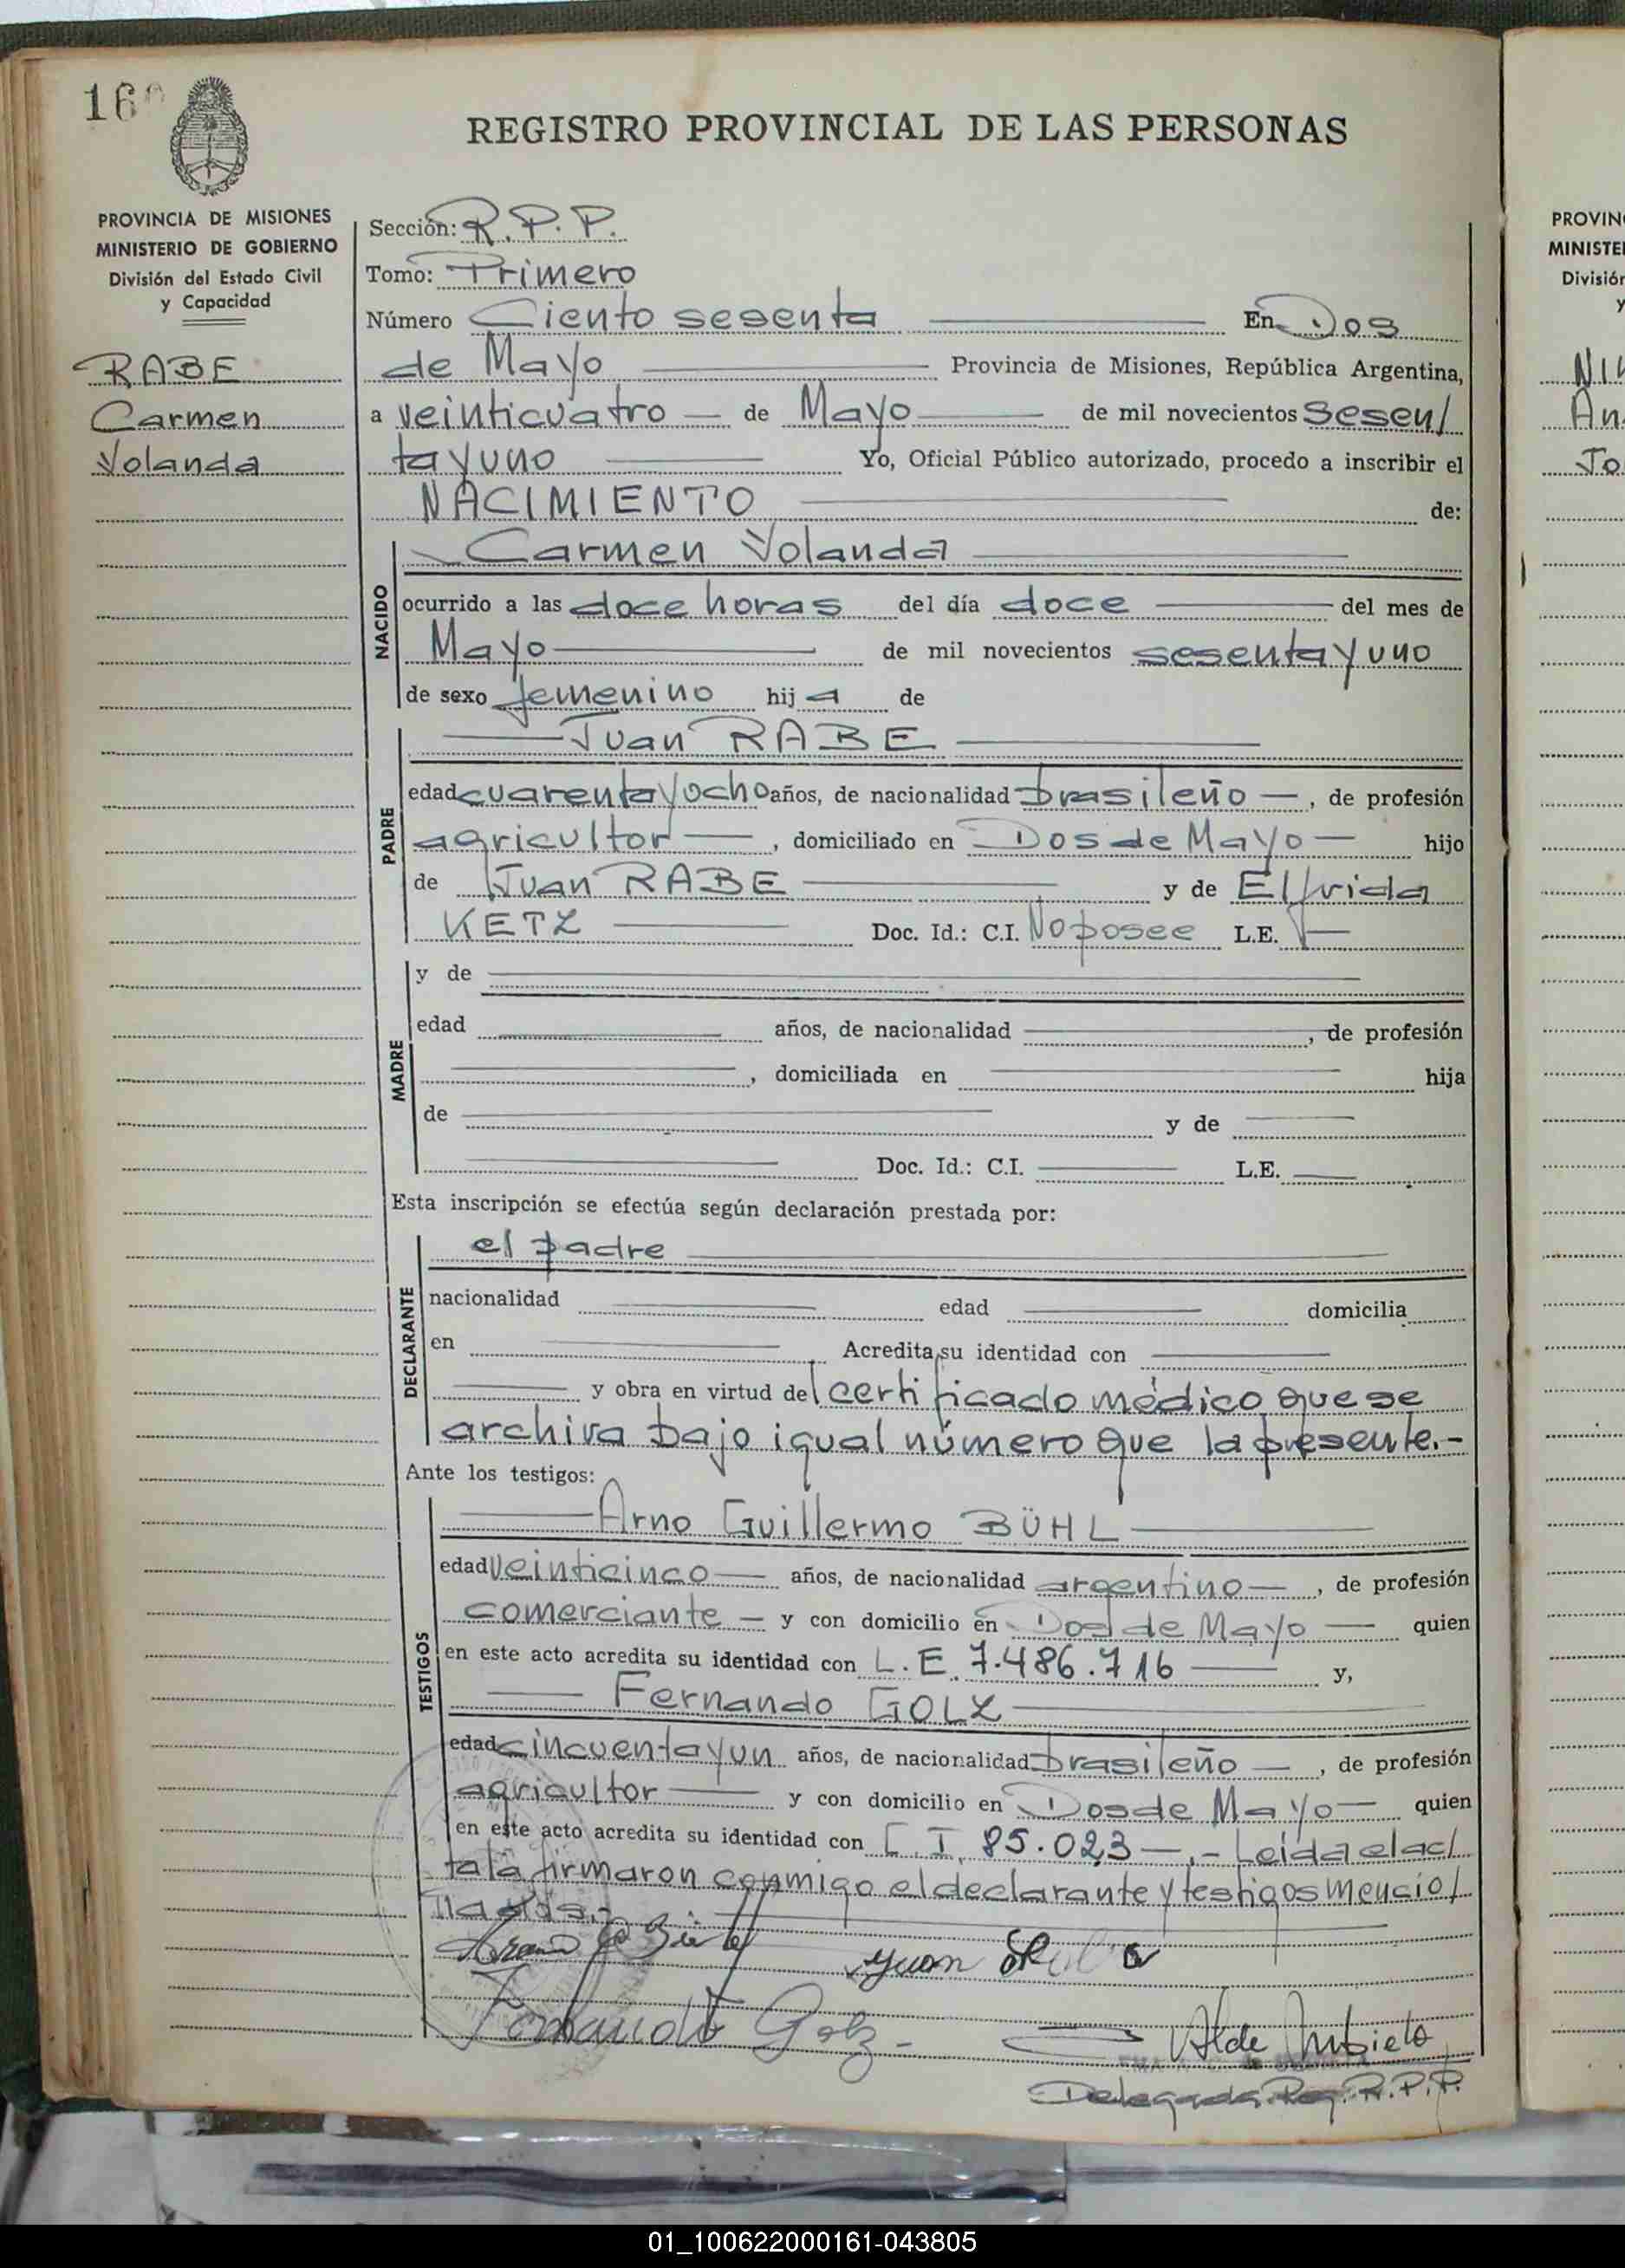 160
REGISTRO PROVINCIAL DE LAS PERSONAS
PROVINCIA DE MISIONES
MINISTERIO DE GOBIERNO
División del Estado Civil
y Capacidad
RABE
Carmen
Yolanda
Sección: R.P.P.
Tomo: Primero
Número Ciento sesenta En Dos
de Mayo Provincia de Misiones, República Argentina,
a veinticuatro de Mayo de mil novecientos Sesen/
ta y uno Yo, Oficial Público autorizado, procedo a inscribir el
NACIMIENTO de:
NACIDO
Carmen Yolanda
ocurrido a las doce horas del día doce del mes de
Mayo de mil novecientos sesenta y uno
de sexo femenino hija de
PADRE
Juan RABE
edad cuarenta y ocho años, de nacionalidad brasileño, de profesión
agricultor, domiciliado en Dos de Mayo hijo
de Juan RABE y de Elfrida
KETZ Doc. Id.: C.I. No posee L.E.
MADRE
y de
edad años, de nacionalidad , de profesión
, domiciliada en hija
de y de
Doc. Id.: C.I. L.E.
Esta inscripción se efectúa según declaración prestada por:
DECLARANTE
el padre
nacionalidad edad domicilia
en Acredita su identidad con
y obra en virtud del certificado médico que se
archiva bajo igual número que la presente.-
Ante los testigos:
TESTIGOS
Arno Guillermo BÜHL
edad veinticinco años, de nacionalidad argentino, de profesión
comerciante y con domicilio en Dos de Mayo quien
en este acto acredita su identidad con L.E. 7.486.716 y,
Fernando GOLZ
edad cincuenta y un años, de nacionalidad brasileño, de profesión
agricultor y con domicilio en Dos de Mayo quien
en este acto acredita su identidad con C.I. 85.023.- Leída el ac/
ta la firmaron conmigo el declarante y testigos mencio/
nados.-
Juan
Golz
Delegada Reg. R.P.P.
PROVIN
MINISTE
Divisió
y
An
Jo
01_100622000161-043805